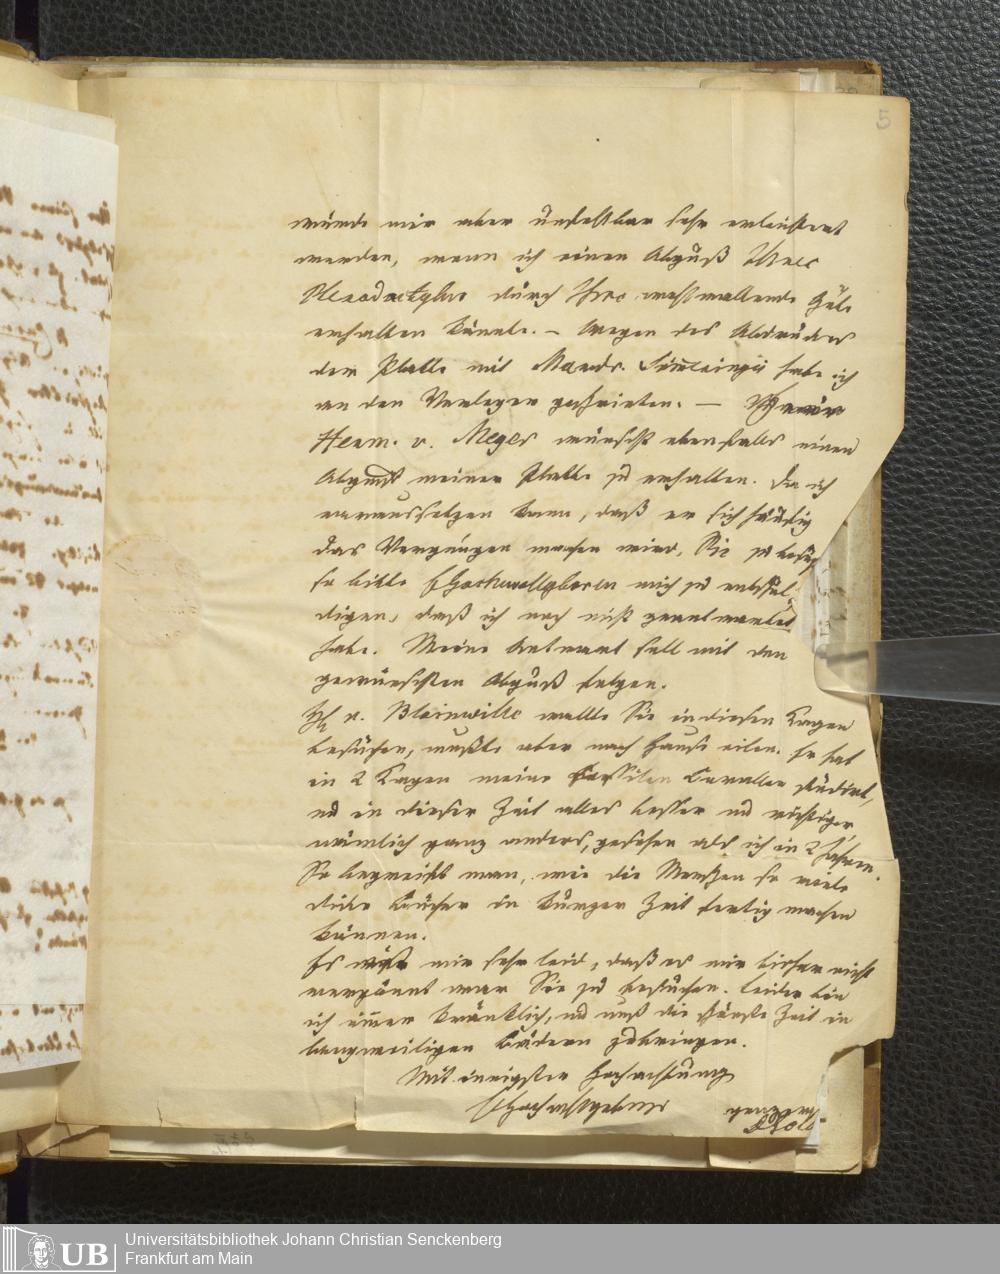 5
würde mir aber unfehlbar sehr erleichtert
werden, wenn ich einen Abguß Ihres
Pterodactylus durch Ihre wohlwollende Güte
erhalten könnte. – Wegen des Abdruckes
der Platte mit Macrosp. habe ich
an den Verleger geschrieben. —
Herm. v. Meyer wünscht ebenfalls einen
Abguß meiner Platte zu erhalten. Da ich
voraussetzen kann, daß er sich häufig
das Vergnügen machen wird, Sie zu
so bitte Hochwohlgeboren mich zu entschul-
digen, daß ich noch nicht geantwortet
habe. Meine Antwort soll mit dem
gewünschten Abguß folgen.
H. v. Blainville wollte Sie in diesen Tagen
besuchen, mußte aber nach Hause eilen. Er hat
in 2 Tagen meine fossilen studirt,
und in dieser Zeit alles besser und richtiger
nämlich ganz anders, gesehen als ich in 2 Jahren.
So begreift man, wie die Menschen so viele
dicke Bücher in kurzer Zeit fertig machen
können.
Es mir sehr leid, daß es mir bisher nicht
vergönnt war Sie zu besuchen. Leider bin
ich immer kränklich, und muß die schönste Zeit in
langweiligen Bädern zubringen.
Mit innigster Hochachtung
Hochwohlgeboren
UB
Universitätsbibliothek Johann Christian Senckenberg
Frankfurt am Main